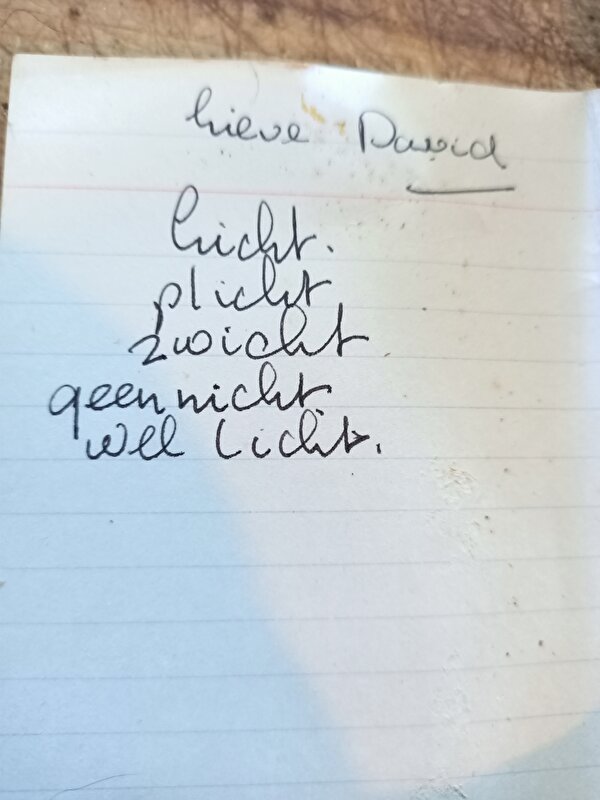 lieve David
licht.
plicht
zwicht
geen nicht
wel licht.